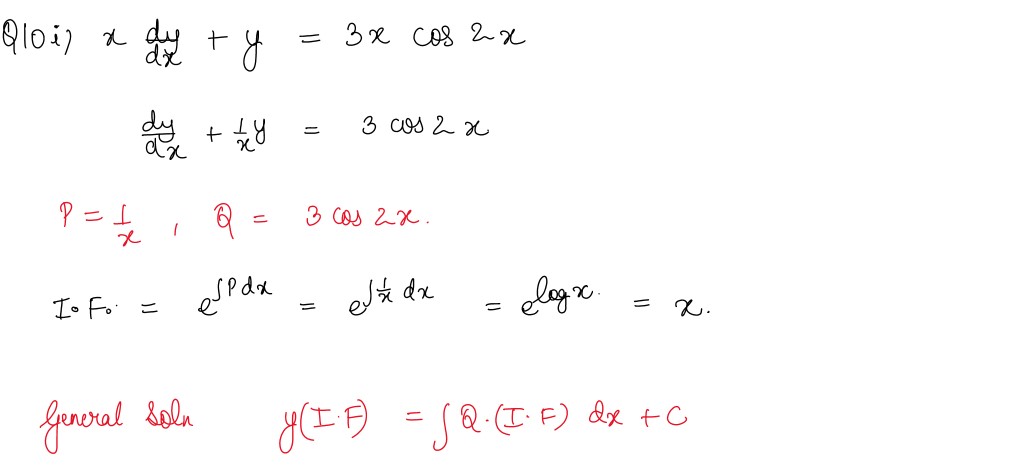 Q10 i) x dy/dx + y = 3x cos 2x
dy/dx + 1/x y = 3 cos 2x
P = 1/x , Q = 3 cos 2x.
I.F. = e^∫P dx = e^∫1/x dx = e^log x. = x.
General Soln y(I.F) = ∫Q.(I.F) dx + C